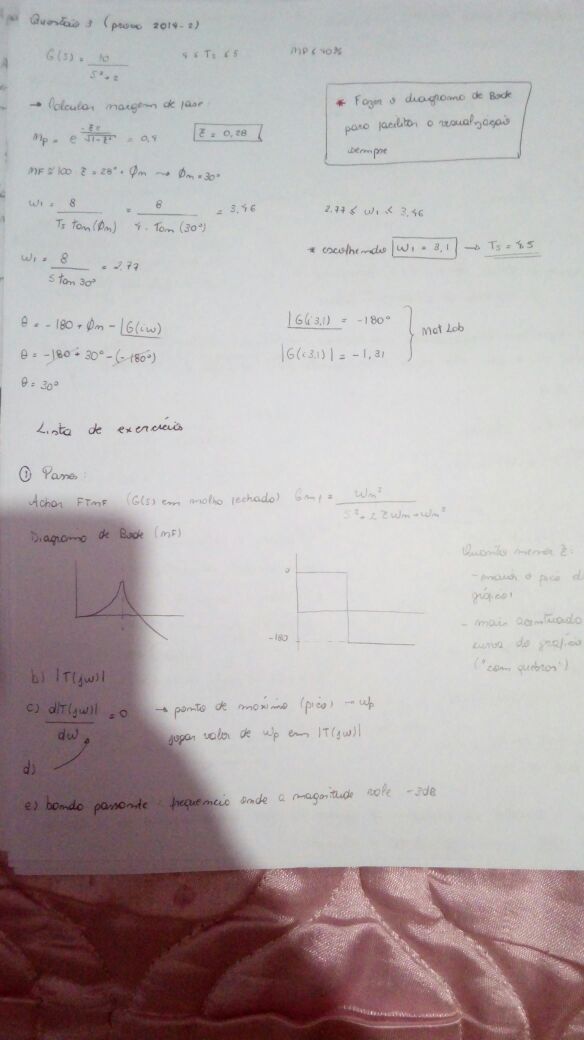 Questão 3 (prova 2014-2)
G(s) = 10 / s²+2    4 ≤ Ts ≤ 5    MP ≤ 40%
→ Calcular margem de fase:
Mp = e^(-ξπ/√(1-ξ²)) = 0,4    ξ = 0,28
* Fazer o diagrama de Bode
para facilitar a visualização
sempre
MF ≅ 100 · ξ = 28° ∴ Øm → Øm = 30°
ω1 = 8 / Ts tan(Øm) = 8 / 4 · tan(30°) = 3,46    2,77 ≤ ω1 ≤ 3,46
* escolhendo ω1 = 3,1 → Ts = 4,5
ω1 = 8 / 5 tan 30° = 2,77
θ = -180 + Øm - ∠G(iω)    ∠G(i3,1) = -180°
θ = -180 + 30° - (-180°)    |G(i3,1)| = -1,31    } Mat Lab
θ = 30°
Lista de exercício
① Passos:
Achar FTMF (G(s) em malha fechado) Gmf = ωn² / s² + 2ξωn + ωn²
Diagrama de Bode (MF)
Quanto menor ξ:
- maior o pico d
gráfico
- mais acentuado
curva do gráfico
("com quebras")
0
-180
b) |T(jω)|
c) d|T(jω)| / dω = 0    → ponto de máximo (pico) → ωp
jogar valor de ωp em |T(jω)|
d)
e) banda passante: frequencia onde a magnitude vale -3dB